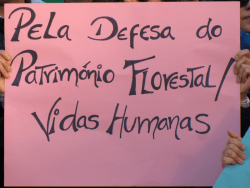 Pela Defesa do
Património Florestal/
Vidas Humanas